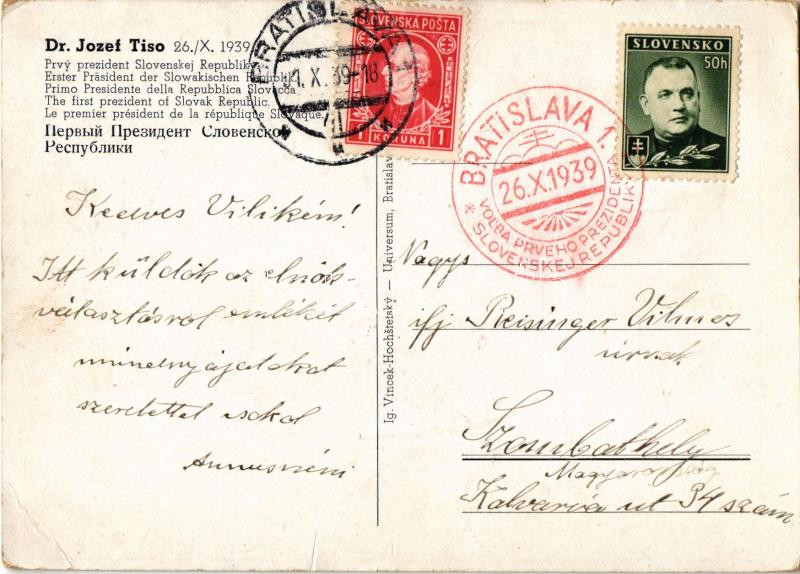 Dr. Jozef Tiso 26./X. 1939
Prvý prezident Slovenskej Republiky
Erster Präsident der Slowakischen Republik
Primo Presidente della Repubblica Slovacca
The first prezident of Slovak Republic.
Le premier président de la république Slovaque.
Первый Президент Словенской
Республики
BRATISLAVA
31. X. 39-18
SLOVENSKÁ POŠTA
1 KORUNA 1
BRATISLAVA 1.
26.X.1939
VOĽBA PRVÉHO PREZIDENTA
* SLOVENSKEJ REPUBLIKY
SLOVENSKO
50h
Kedves Vilikém!
Itt küldök az elnök-
választásról emléket
mindnyájatokat
szeretettel csókol
Annusnéni
Ig. Vincek-Hochštetský — Universum, Bratislava
Nagys
ifj Reisinger Vilmos
úrnak
Szombathely
Magyarország
Kálvária ut 34 szám